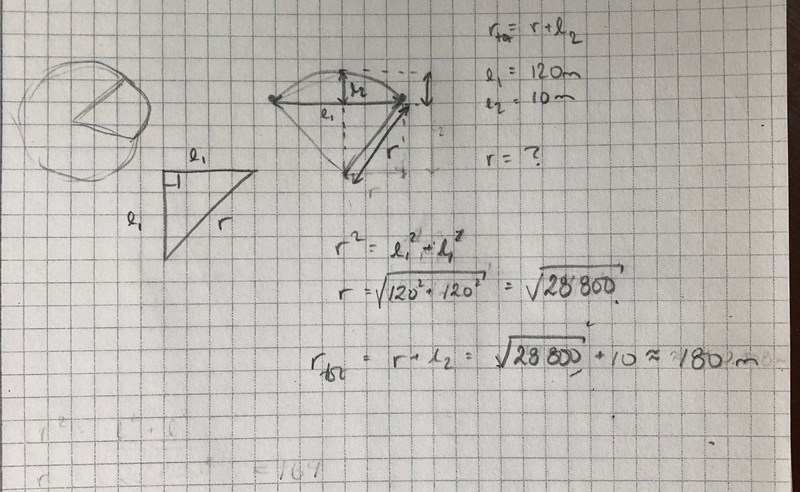 r_tot = r + l₂
l₁ = 120m
l₂ = 10m
r = ?
l₂
l₁
r
r
l₁
l₁
r
r² = l₁² + l₁²
r = √120² + 120² = √28 800
r_tot = r + l₂ = √28 800 + 10 ≈ 180 m
r² l² + l²
r = 169